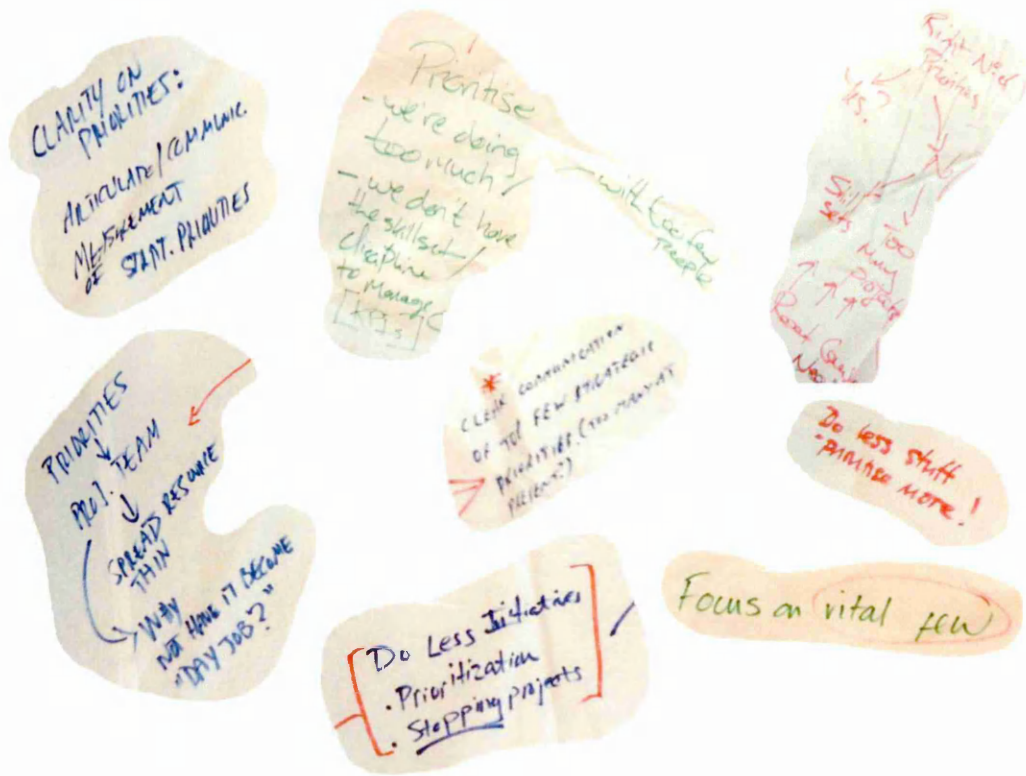 CLARITY ON
PRIORITIES:
ARTICULATE/COMMUNIC.
MEASUREMENT
OF STRAT. PRIORITIES
Prioritise
- we're doing
too much/
- we don't have
the skillset/
discipline
to manage
[KPIs]
- with too few
people
Right No. of
Priorities
Yes?
No
Skill
sets
Too
Many
projects
PRIORITIES
PROJ. TEAM
SPREAD RESOURCE
THIN
WHY
NOT HAVE IT BECOME
"DAY JOB?"
* CLEAR COMMUNICATION
OF TOP FEW STRATEGIC
PRIORITIES. (TOO MANY AT
PRESENT?)
Do less stuff
PRIORITISE MORE!
Focus on vital few
Do Less Initiatives
. Prioritization
. Stopping projects